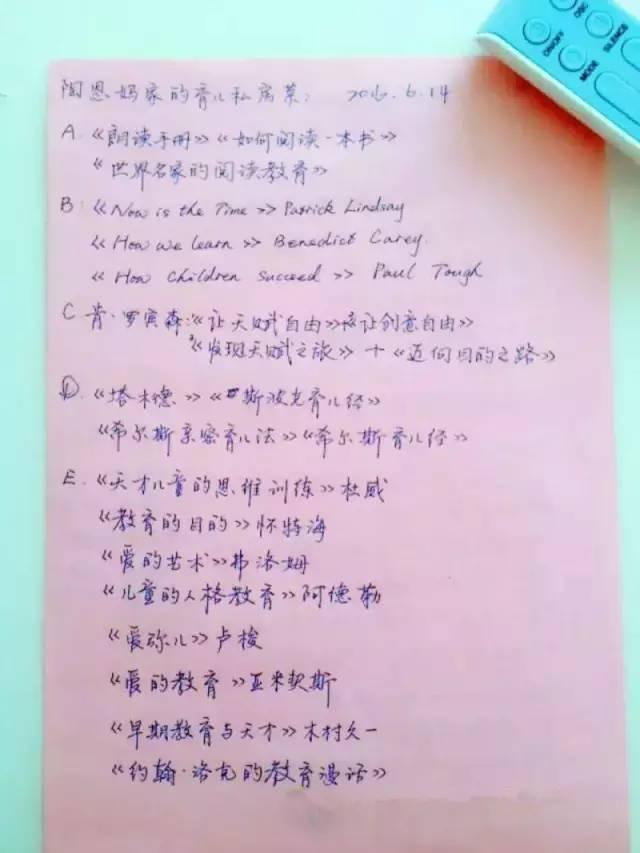 陶恩妈家的育儿私房菜: 2016.6.14
A.《朗读手册》《如何阅读一本书》
《世界名家的阅读教育》
B:《Now is the Time》Patrick Lindsay
《How we learn》Benedict Carey.
《How Children Succeed》Paul Tough
C 肯·罗宾森:《让天赋自由》《让创意自由》
《发现天赋之旅》+《迈向目的之路》
D.《塔木德》《斯波克育儿经》
《希尔斯亲密育儿法》《希尔斯育儿经》
E.《天才儿童的思维训练》杜威
《教育的目的》怀特海
《爱的艺术》弗洛姆
《儿童的人格教育》阿德勒
《爱弥儿》卢梭
《爱的教育》亚米契斯
《早期教育与天才》木村久一
《约翰·洛克的教育漫话》
DISC
SILENCE
ON/OFF
MODE